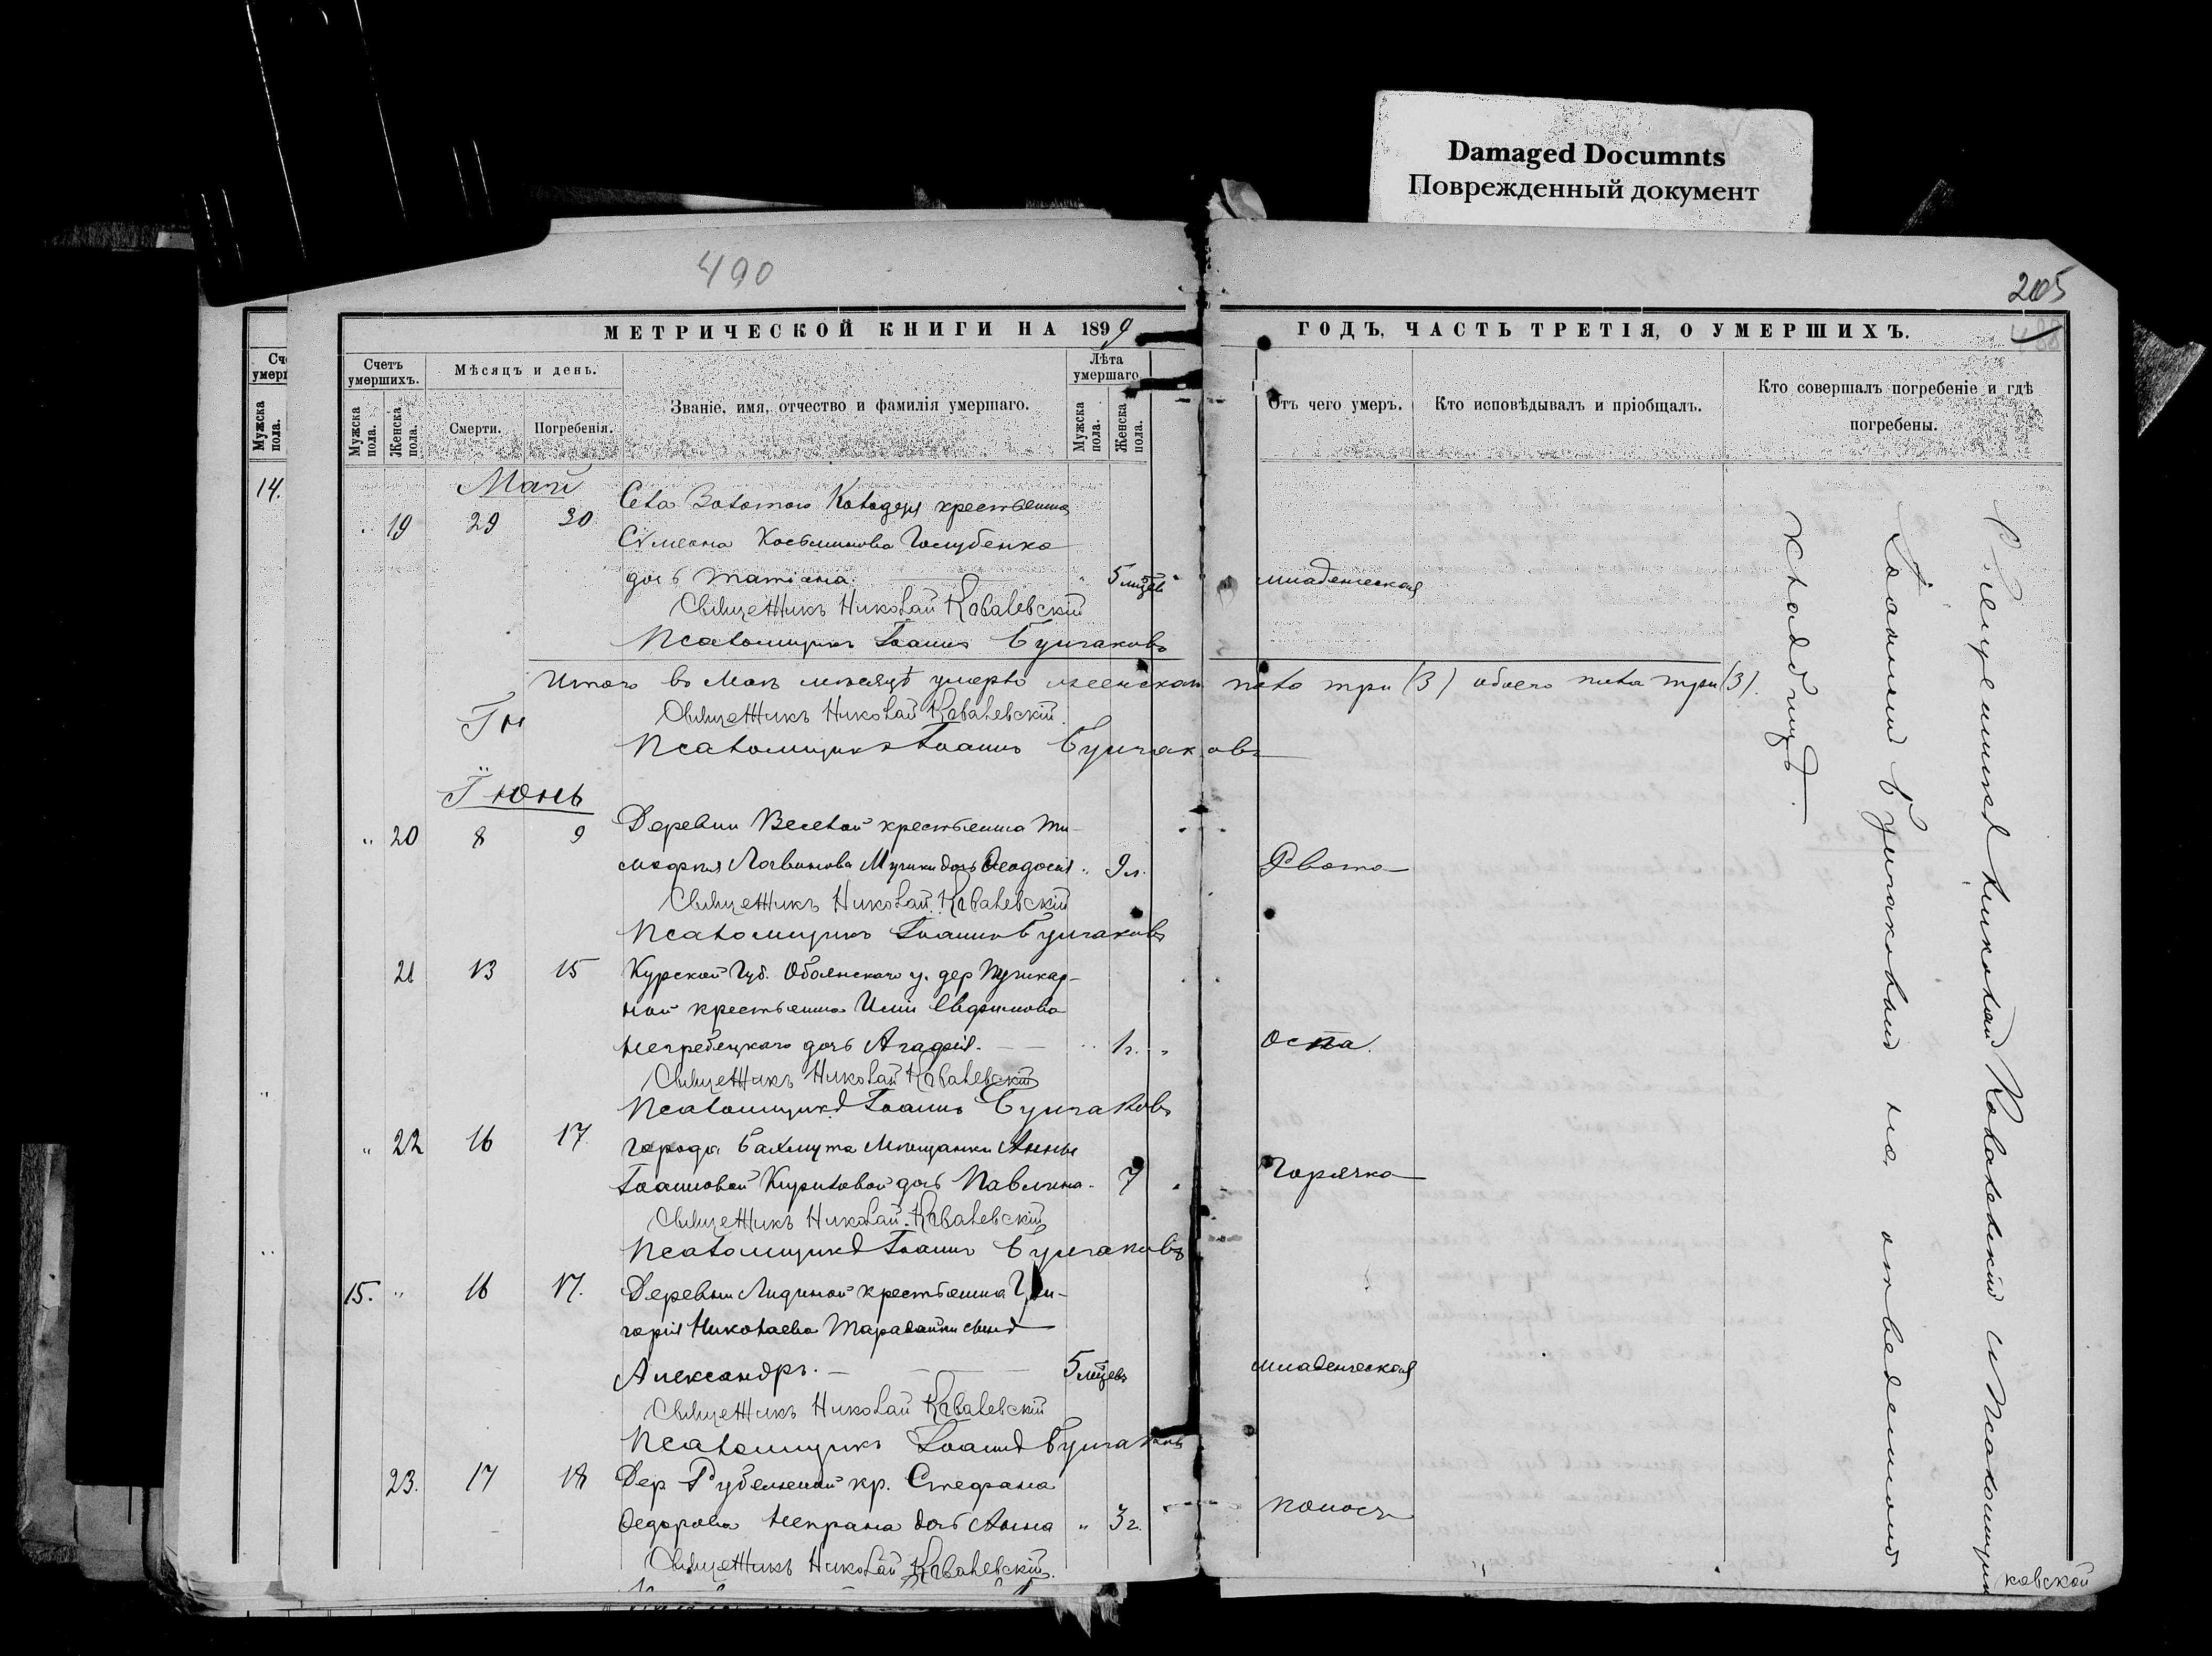 Damaged Documnts
Поврежденный документ
490
205
МЕТРИЧЕСКОЙ КНИГИ НА 1899
ГОДЪ, ЧАСТЬ ТРЕТІЯ, О УМЕРШИХЪ.
Счетъ умершихъ.
Мѣсяцъ и день.
Званіе, имя, отчество и фамилія умершаго.
Лѣта умершаго
Отъ чего умеръ.
Кто исповѣдывалъ и пріобщалъ.
Кто совершалъ погребеніе и гдѣ погребены.
Мужска пола.
Женска пола.
Смерти.
Погребенія.
Мужска пола.
Женска пола.
Мужска пола.
14.
Май
19 29 30 Села Золотого Колодезя крестьянина
Сѵмеона Косьминова Голубенка
дочь Татіана. 5 мцевъ младенческая
Священникъ Николай Ковалевскій
Псаломщикъ Іоаннъ Булгаковъ
Итого въ Маѣ мѣсяцѣ умерло женскаго пола три (3) обоего пола три (3).
Священникъ Николай Ковалевскій
Ін
Псаломщикъ Іоаннъ Булгаковъ
Іюнь
" 20 8 9 Деревни Веселой крестьянина Ти-
мофея Логвинова дочь Ѳеодосія " 9 л. Рвота
Священникъ Николай Ковалевскій
Псаломщикъ Іоаннъ Булгаковъ
21 13 15 Курской Губ. Обоянскаго у. дер Пушкар-
ной крестьянина Иліи Евфимова
дочь Агафія. 1 г. Оспа.
Священникъ Николай Ковалевскій
Псаломщикъ Іоаннъ Булгаковъ
" 22 16 17 города Бахмута Мѣщанки Анны
Іоанновой Кириловой дочь Павлина. 7 Горячка
Священникъ Николай Ковалевскій
Псаломщикъ Іоаннъ Булгаковъ
15. " 16 17. Деревни Лидиной крестьянина Гри-
горія Николаева сынъ
Александръ. 5 мцевъ младенческая
Священникъ Николай Ковалевскій
Псаломщикъ Іоаннъ Булгаковъ
23. 17 18 Дер кр. Стефана
Ѳедорова дочь Анна " 3 г. поносъ
Священникъ Николай Ковалевскій.
Николай Ковалевскій и Псаломщик
Іоанній на отведенномъ
кладбищѣ.
ковской